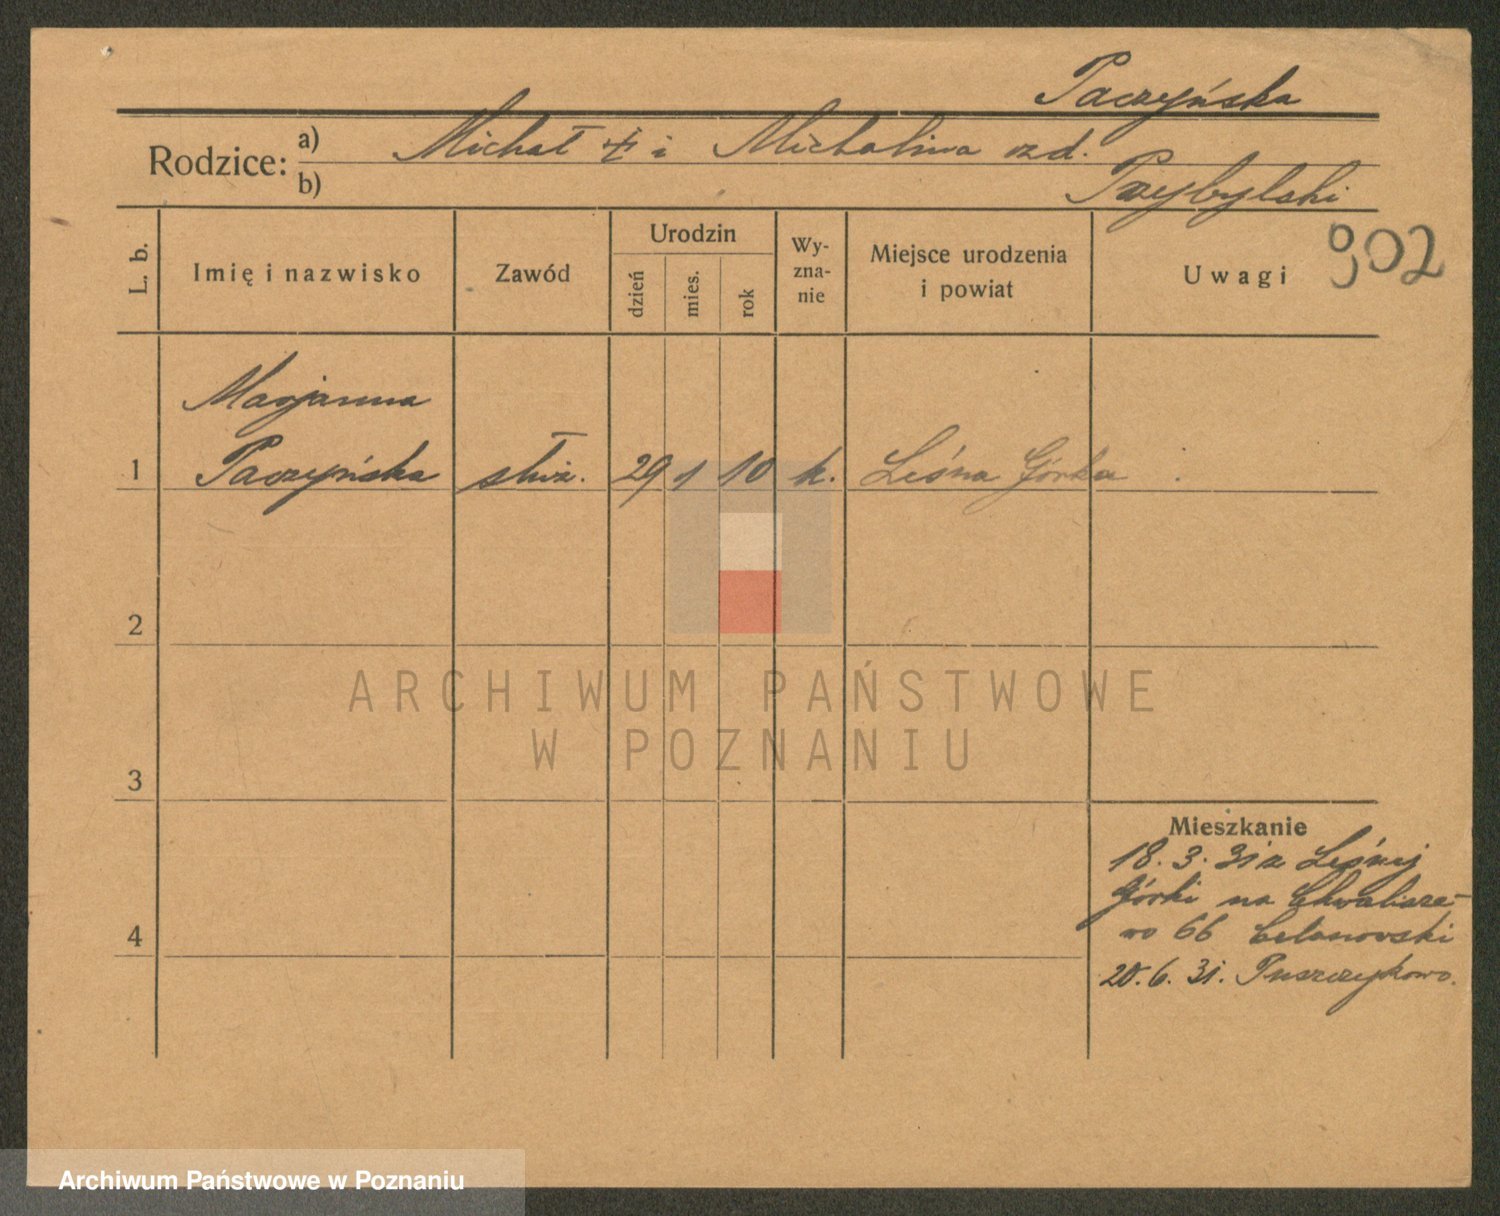 Paczyńska
Rodzice: a) Michał i Michalina
b) Przybylski
902
L. b. Imię i nazwisko Zawód Urodzin dzień mies. rok Wy-zna-nie Miejsce urodzenia i powiat Uwagi
Marjanna
1 Paczyńska służ. 29 1 10 k. Leśna Górka
2
ARCHIWUM PAŃSTWOWE
W POZNANIU
3
Mieszkanie
18. 3. 31 z Leśnej
Górki na Chwalisze-
wo 66
4
20. 6. 31. Puszczykowo.
Archiwum Państwowe w Poznaniu